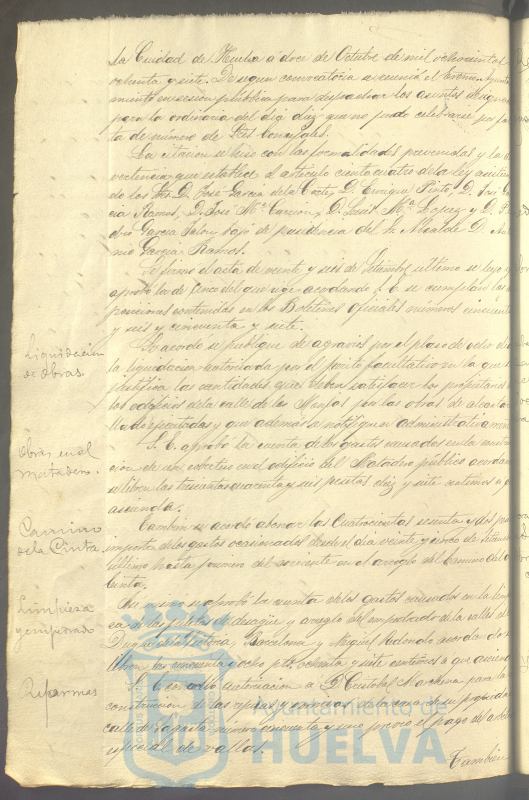 la Ciudad de Huelva a doce de Octubre de mil ochocientos
ochenta y siete. De segun convocatoria se reunió el Excmo. Ayunta
miento en sesion pública para despachar los asuntos designados
para la ordinaria del dia diez que no pudo celebrarse por fal
ta de número de Sres Concejales.
La citacion se hizo con las formalidades prevenidas y la ad
vertencia que establece el artículo ciento cuatro de la ley asistien
do los Sres. D. José Garcia de la Corte, D. Enrique Pinto, D. José Gar
cia Ramos, D. José Mª Carrion, D. Luis Mª Lopez y D.
Garcia bajo la presidencia del Sr. Alcalde D. Anto
nio Garcia Ramos.
Se firmó el acta de veinte y seis de Setiembre último se leyó y
aprobó la de cinco del que rige acordando S. E. se cumplan las dis
posiciones contenidas en los Boletines oficiales números cincuenta
y seis y cincuenta y siete.
Liquidacion
de Obras.
Se acordó se publique de agravios por el plazo de ocho dias
la liquidacion autorizada por el perito facultativo en la que se
justifica las cantidades que deben satisfacer los propietarios de
los edificios de la calle de las Monjas por las obras de alcanta
rilla ejecutadas y que además se notifiquen administrativamente
Obras en el
Matadero.
S. E. aprobó la cuenta de los gastos causados en la construc
cion de un en el edificio del Matadero público acordando
se libren las trescientas cuarenta y seis pesetas diez y siete centimos a que
ascienda.
Camino
de la Cinta
Tambien se acordó abonar las Cuatrocientas sesenta y dos pts
importe de los gastos ocasionados desde el dia veinte y cinco de Setiembre
último hasta primero del corriente en el arreglo del Camino de la
Cinta.
Limpieza
y empedrado
Asi mismo se aprobó la cuenta de los gastos causados en la limpie
za de las de desagüe y arreglo del empedrado de las calles del
Duque de la Victoria, Barcelona y Miguel Redondo acordando se
libren las cincuenta y ocho pts ochenta y siete centimos a que asciende
Reformas
S. E. concedió autorizacion a D. Cristobal para la
construccion de las en la casa de su propiedad
calle número cincuenta y uno previo el pago del arbitrio
especial de vallas.
Tambien
Ayuntamiento de
HUELVA